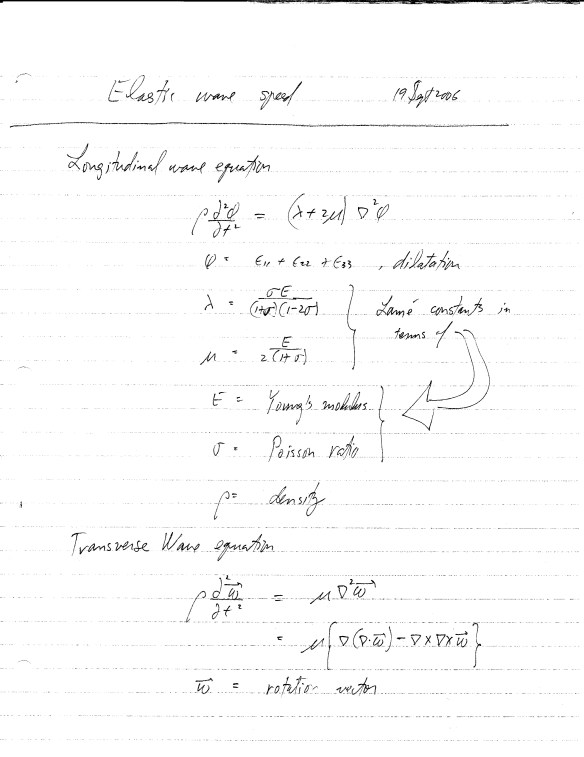 Elastic wave speed 19 Sept 2006
Longitudinal wave equation
ρ ∂²φ/∂t² = (λ + 2μ) ∇²φ
φ = ϵ₁₁ + ϵ₂₂ + ϵ₃₃ , dilatation
λ = σE/(1+σ)(1-2σ) } Lamé constants in
terms of
μ = E/2(1+σ)
E = Young's modulus
σ = Poisson ratio
ρ = density
Transverse Wave equation
ρ ∂²w⃗/∂t² = μ ∇²w⃗
= μ{∇(∇·w⃗) - ∇×∇×w⃗}
w⃗ = rotation vector